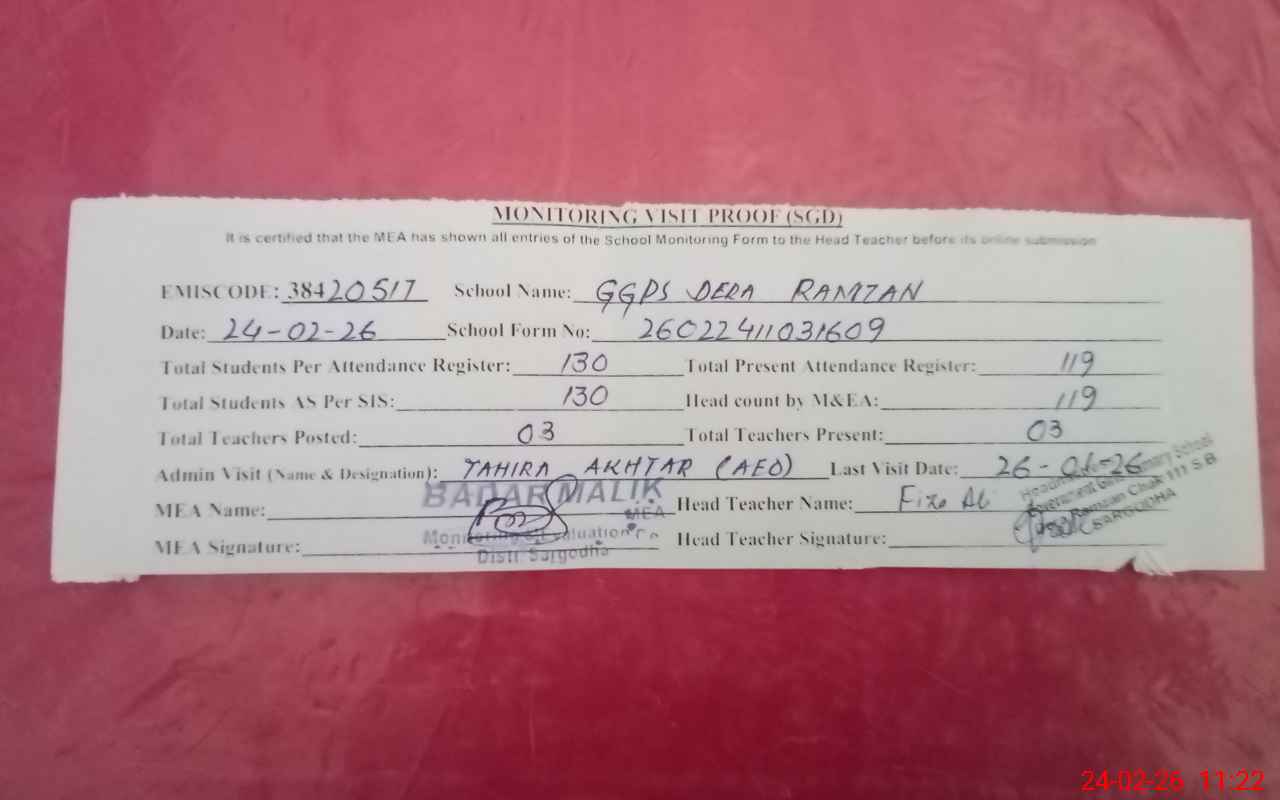 MONITORING VISIT PROOF (SGD)
It is certified that the MEA has shown all entries of the School Monitoring Form to the Head Teacher before its online submission
EMISCODE: 38420517 School Name: GGPS DERA RAMZAN
Date: 24-02-26 School Form No: 26022411031609
Total Students Per Attendance Register: 130 Total Present Attendance Register: 119
Total Students AS Per SIS: 130 Head count by M&EA: 119
Total Teachers Posted: 03 Total Teachers Present: 03
Admin Visit (Name & Designation): TAHIRA AKHTAR (AEO) Last Visit Date: 26-01-26
MEA Name: BADAR MALIK Head Teacher Name:
MEA
MEA Signature: Head Teacher Signature:
Monitoring & Evaluation
Distt. Sargodha
Government Primary School
Ramzan Chak 111 S.B
SARGODHA
24-02-26 11:22